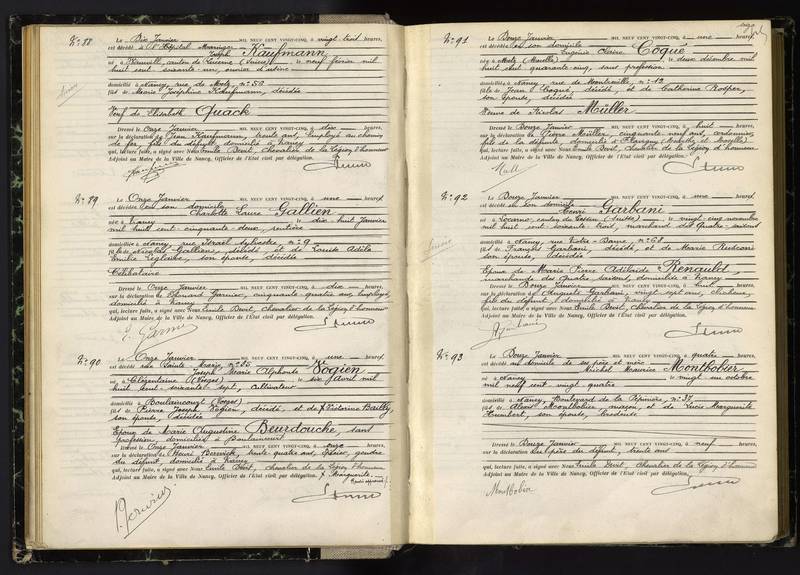 N° 88
Le Dix Janvier MIL NEUF CENT VINGT-CINQ, à vingt trois heures,
est décédé à l'Hôpital Maringer
Joseph Kaufmann
né à canton de Lucerne (Suisse) le neuf février mil
huit cent soixante un, ouvrier d'usine
domicilié à Nancy, rue de Metz n° 50
fils de Marie Joséphine Kauffmann, décédée
Veuf de Elisabeth Quack
Dressé le Onze Janvier MIL NEUF CENT VINGT-CINQ, à dix heures,
sur la déclaration de Jean Kauffmann, trente ans, employé au chemin
de fer, fils du défunt, domicilié à Nancy
qui, lecture faite, a signé avec Nous Emile Devit, chevalier de la Légion d'honneur
Adjoint au Maire de la Ville de Nancy, Officier de l'Etat civil par délégation.
N° 89
Le Onze Janvier MIL NEUF CENT VINGT-CINQ, à une heures,
est décédée en son domicile
Charlotte Laure Gallien
née à Nancy le dix huit Janvier
mil huit cent cinquante deux, rentière
domiciliée à Nancy, rue Israël Sylvestre, n° 9
fille de Nicolas Gallien, décédé, et de Louise Adèle
Emilie son épouse, décédée
Célibataire
Dressé le Onze Janvier MIL NEUF CENT VINGT-CINQ, à dix heures,
sur la déclaration de Garnier, cinquante quatre ans, employé,
domicilié à Nancy
qui, lecture faite, a signé avec Nous Emile Devit, chevalier de la Légion d'honneur
Adjoint au Maire de la Ville de Nancy, Officier de l'Etat civil par délégation.
N° 90
Le Onze Janvier MIL NEUF CENT VINGT-CINQ, à une heures,
est décédé rue Sainte Marie, n° 55
Joseph Marie Alphonse Vogien
né à Clézentaine (Vosges) le six Avril mil
huit cent soixante sept, cultivateur
domicilié à Boulaincourt (Vosges)
fils de Pierre Joseph Vogien, décédé, et de Victorine Bailly,
son épouse, décédée
Epoux de Marie Augustine Beurdouche, sans
profession, domiciliée à Boulaincourt
Dressé le Onze Janvier MIL NEUF CENT VINGT-CINQ, à onze heures,
sur la déclaration de Henri trente quatre ans, épicier, gendre
du défunt, domicilié à Nancy
qui, lecture faite, a signé avec Nous Emile Devit, chevalier de la Légion d'honneur
Adjoint au Maire de la Ville de Nancy, Officier de l'Etat civil par délégation. Marguerite
N° 91
Le Douze Janvier MIL NEUF CENT VINGT-CINQ, à une heures,
est décédée en son domicile
Eugénie Claire Coqué
née à Metz (Moselle) le deux décembre mil
huit cent quarante cinq, sans profession
domiciliée à Nancy, rue de n° 12
fille de Jean Coqué, décédé, et de Catherine
son épouse, décédée
Veuve de Nicolas Müller
Dressé le Douze Janvier MIL NEUF CENT VINGT-CINQ, à huit heures,
sur la déclaration de Pierre Müller, cinquante neuf ans, cordonnier,
fils de la défunte, domicilié à Flavigny (Meurthe et Moselle)
qui, lecture faite, a signé avec Nous Emile Devit, chevalier de la Légion d'honneur
Adjoint au Maire de la Ville de Nancy, Officier de l'Etat civil par délégation.
N° 92
Le Douze Janvier MIL NEUF CENT VINGT-CINQ, à une heures,
est décédé en son domicile
Henri Garbani
né à Locarno, canton du Tessin (Suisse) le vingt cinq novembre
mil huit cent soixante trois, marchand des quatre saisons
domicilié à Nancy, rue Notre-Dame, n° 68
fils de François Garbani, décédé, et de Marie Rusconi
son épouse, décédée
Epoux de Marie Pierre Adélaïde Renauld,
marchande des quatre saisons, domiciliée à Nancy
Dressé le Douze Janvier MIL NEUF CENT VINGT-CINQ, à huit heures,
sur la déclaration de Auguste Garbani, vingt sept ans,
fils du défunt, domicilié à Nancy
qui, lecture faite, a signé avec Nous Emile Devit, chevalier de la Légion d'honneur
Adjoint au Maire de la Ville de Nancy, Officier de l'Etat civil par délégation.
N° 93
Le Douze Janvier MIL NEUF CENT VINGT-CINQ, à quatre heures,
est décédé au domicile de ses père et mère
Michel Maurice Montbobier
né à Nancy le vingt six octobre
mil neuf cent vingt quatre
domicilié à Nancy, Boulevard de la Pépinière, n° 37
fils de Montbobier, maçon, et de Lucie Marguerite
Humbert, son épouse,
Dressé le Douze Janvier MIL NEUF CENT VINGT-CINQ, à neuf heures,
sur la déclaration du père du défunt, trente ans
qui, lecture faite, a signé avec Nous Emile Devit, Chevalier de la Légion d'honneur
Adjoint au Maire de la Ville de Nancy, Officier de l'Etat civil par délégation.
Montbobier